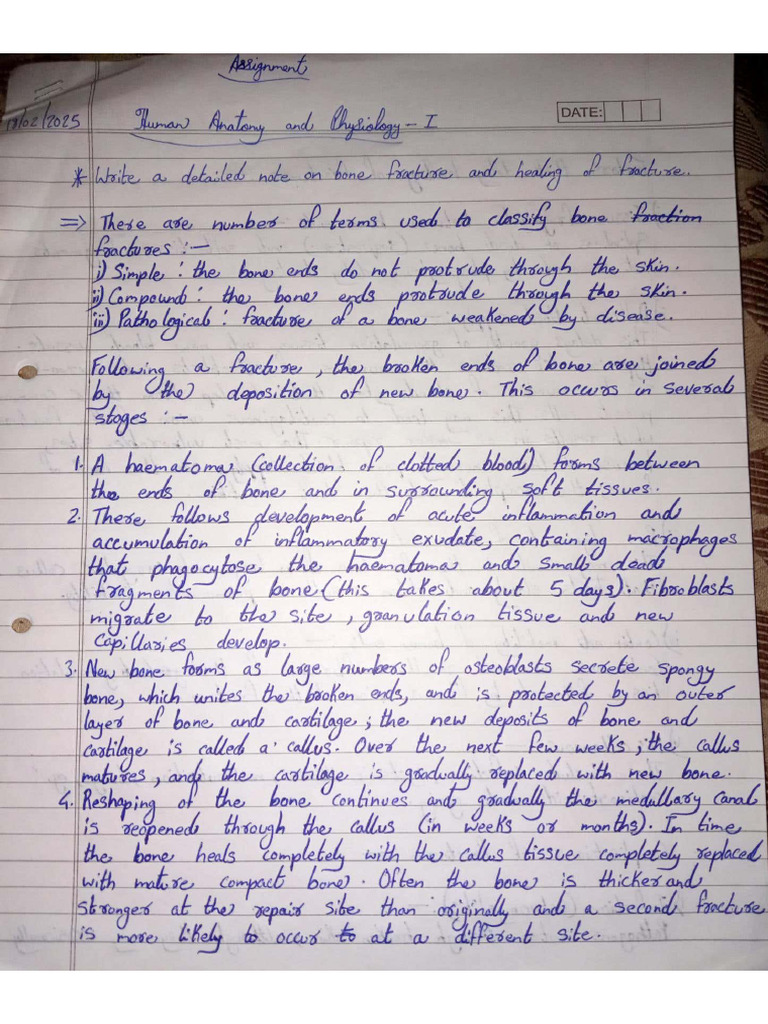 Assignment
19/02/2025 Human Anatomy and Physiology - I DATE:
* Write a detailed note on bone fracture and healing of fracture.
⇒ There are number of terms used to classify bone fraction
fractures :-
i) Simple : the bone ends do not protrude through the skin.
ii) Compound : the bone ends protrude through the skin.
iii) Pathological : fracture of a bone weakened by disease.
Following a fracture, the broken ends of bone are joined
by the deposition of new bone. This occurs in several
stages :-
1. A haematoma (collection of clotted blood) forms between
the ends of bone and in surrounding soft tissues.
2. There follows development of acute inflammation and
accumulation of inflammatory exudate, containing macrophages
that phagocytose the haematoma and small dead
fragments of bone (this takes about 5 days). Fibroblasts
migrate to the site, granulation tissue and new
capillaries develop.
3. New bone forms as large numbers of osteoblasts secrete spongy
bone, which unites the broken ends, and is protected by an outer
layer of bone and cartilage; the new deposits of bone and
cartilage is called a callus. Over the next few weeks, the callus
matures, and the cartilage is gradually replaced with new bone.
4. Reshaping of the bone continues and gradually the medullary canal
is reopened through the callus (in weeks or months). In time
the bone heals completely with the callus tissue completely replaced
with mature compact bone. Often the bone is thicker and
stronger at the repair site than originally and a second fracture
is more likely to occur to at a different site.